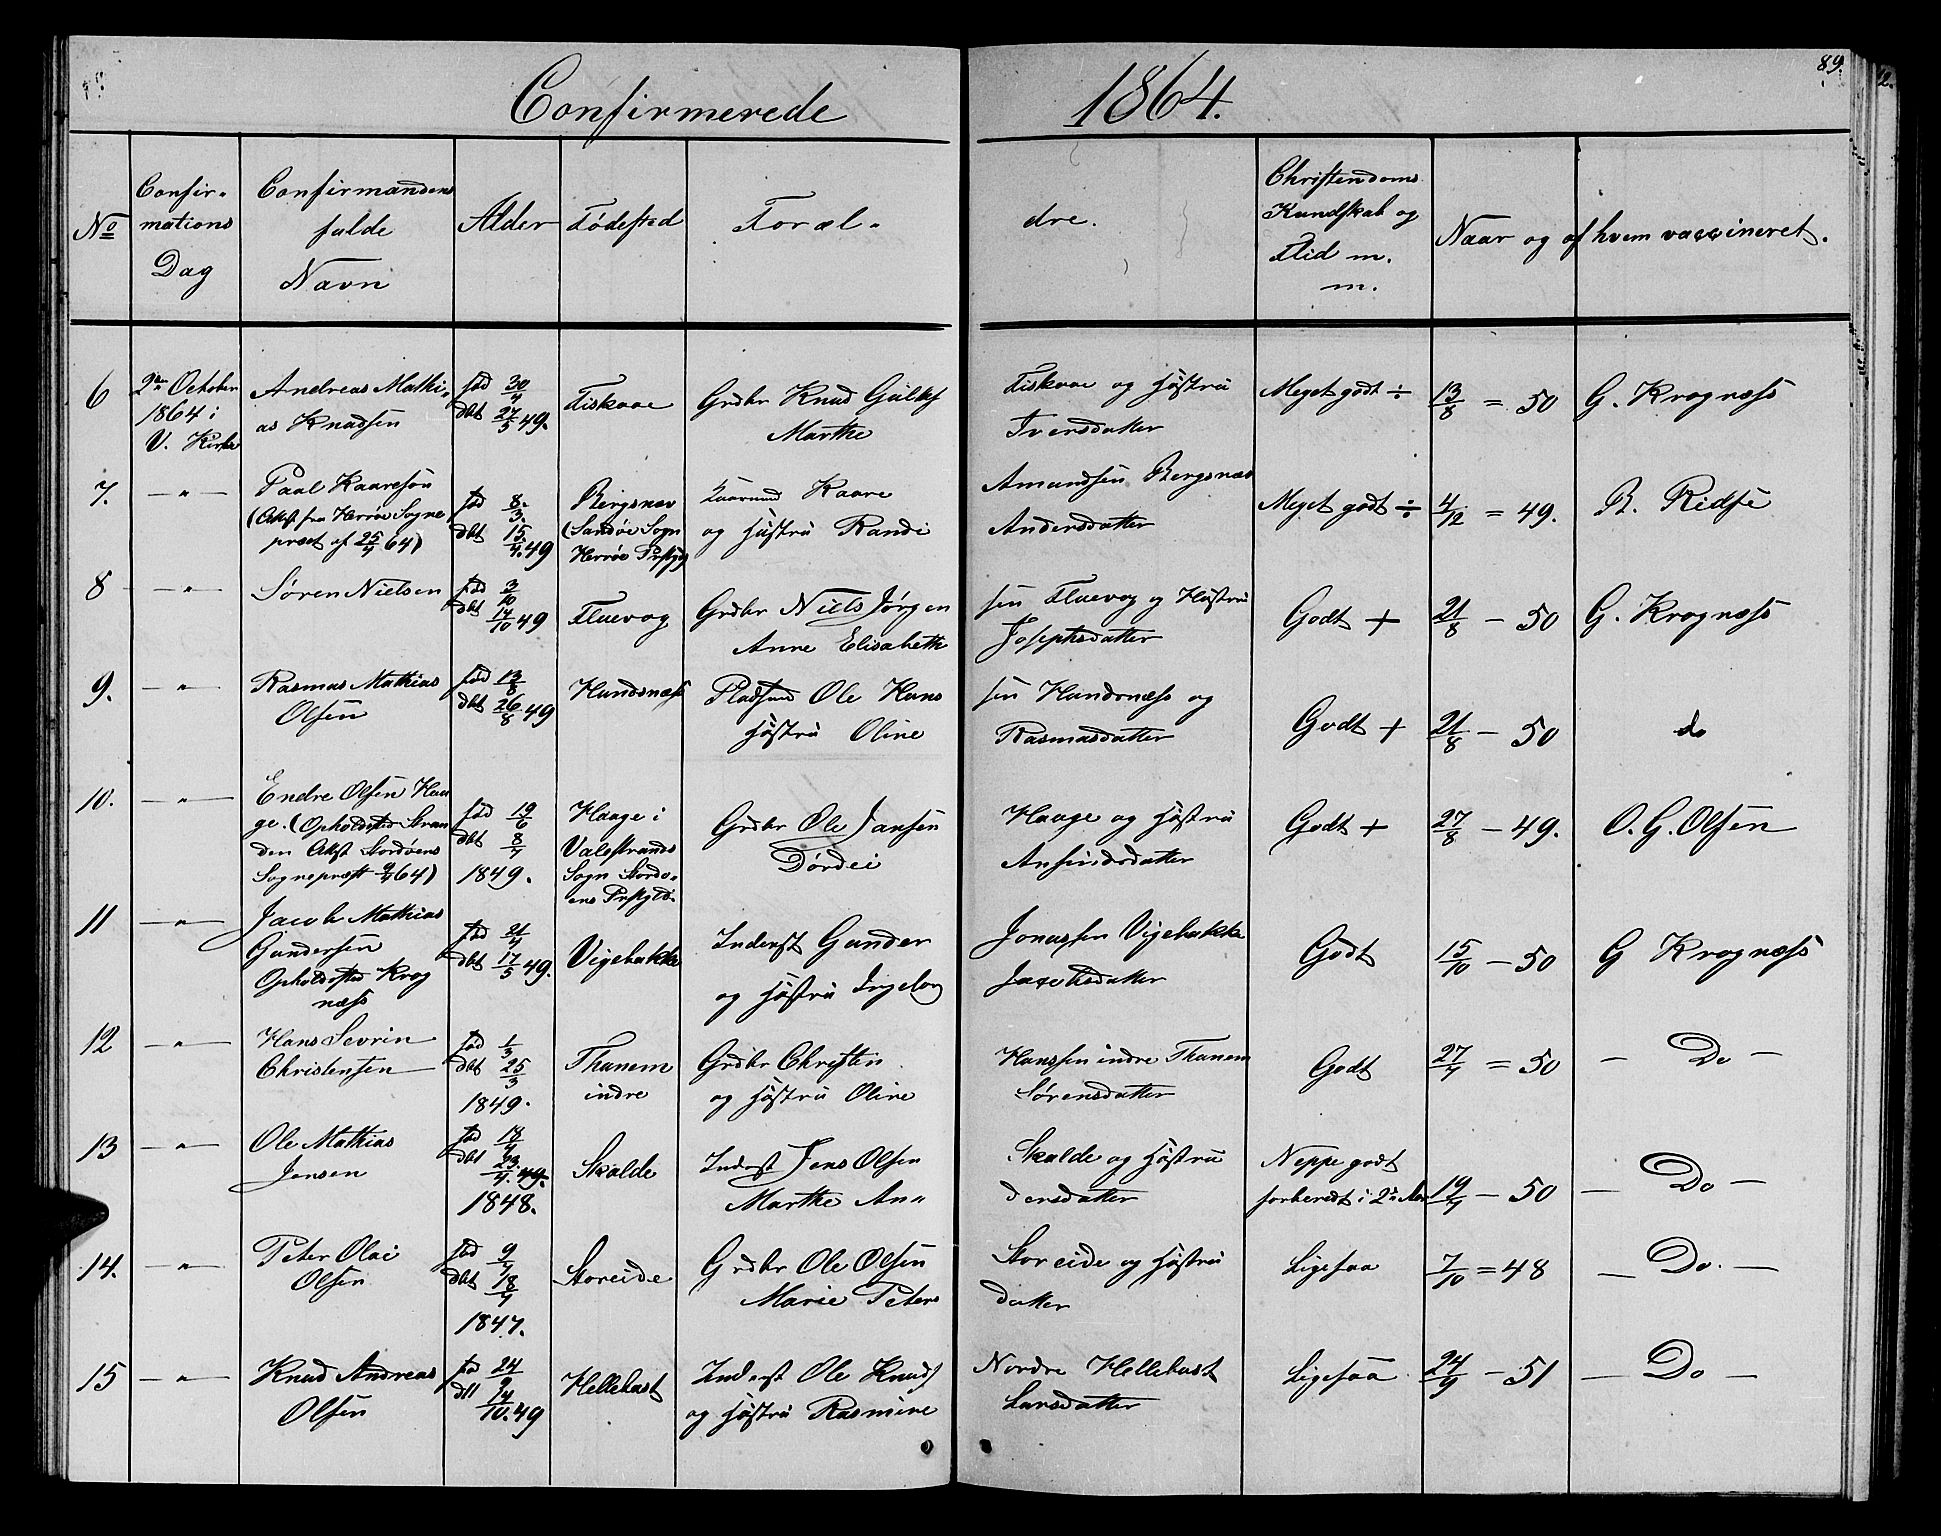 Confirmerede 1864.
89.
No
Confir-
mations
Dag
Confirmandens
fulde
Navn
Alder
Fødested
Foræl-
dre.
Christendoms
Kundskab og
Flid m.
m.
Naar og af hvem vaccineret.
6
2den October
1864 i
V. Kirke
Andreas Mathi-
as Knudsen
fød 30/4
dbt 27/5 49.
Fiskaae
Grdbr Knud
Marthe
Fiskaae og Hustru
Iversdatter
Meget godt ÷
13/8 = 50
G. Krognæss
7.
— " —
Paal Kaaresøn
(Attst fra Herrøe Sogne
præst af 25/4 64)
fød 8/3.
dbt 15/4. 49
Bergsnæs
(Sandøe Sogn
Herrøe Prstgjd
Kaare
og Hustru Randi
Amundsen Bergsnæs
Andersdatter
Meget godt ÷
4/12 = 49.
B. Ridse
8
— " —
Søren Nielsen
fød 3/10
dbt 14/10 49
Fluevog
Grdbr Niels Jørgen
Anne Elisabeth
sen Fluevog og Hustru
Josephsdatter
Godt +
21/8 — 50
G. Krognæss
9.
— " —
Rasmus Mathias
Olsen
fød 13/8
dbt 26/8 49
Hundsnæss
Pladsmd Ole Hans
Hustru Oline
sen Hundsnæss og
Rasmusdatter
Godt +
21/8 — 50
do
10.
— " —
Endre Olsen Hau
ge. (Opholdsted Stran
den Attst Stordøens
Sognepræst 64)
fød 19/6
dbt 8/7
1849.
Hauge i
Valestrands
Sogn Stordø-
ens Prstgld.
Grdbr Ole Jansen
Dørdei
Hauge og Hustru
Ansindsdatter
Godt +
27/8 — 49.
O. G. Olsen
11
— " —
Jacob Mathias
Gundersen
Opholdsted Krog
næss
fød 21/4
dbt 17/5 49.
Vigebakke
Inderst Gunder
og Hustru Ingeborg
Jonassen Vigebakke
Jacobsdatter
Godt
15/10 — 50
G Krognæss
12
— " —
Hans Sevrin
Christensen
fød 1/3
dbt 25/3
1849.
Thunem
indre
Grdbr Christen
og Hustru Oline
Hanssen indre Thunem
Sørensdatter
Godt
27/7 = 50
— Do —
13
— " —
Ole Mathias
Jensen
fød 18/4
dbt 23/4. 49.
1848.
Skalde
Inderst Jens Olsen
Marthe An-
Skalde og Hustru
dersdatter
Neppe godt
forberedt i 2
19/7 — 50
— Do —
14.
— " —
Peter Olai
Olsen
fød 9/4
dbt 18/4
1847.
Storeide
Grdbr Ole Olsen
Marie Peters
Storeide og Hustru
datter
Ligesaa
7/10 = 48
— Do. —
15
— " —
Knud Andreas
Olsen
fød 24/9
dbt 14/10. 49
Hellebust
Inderst Ole Knuds
og Hustru Rasmine
Nordre Hellebust
Larsdatter
Ligesaa
24/9 — 51
— Do —